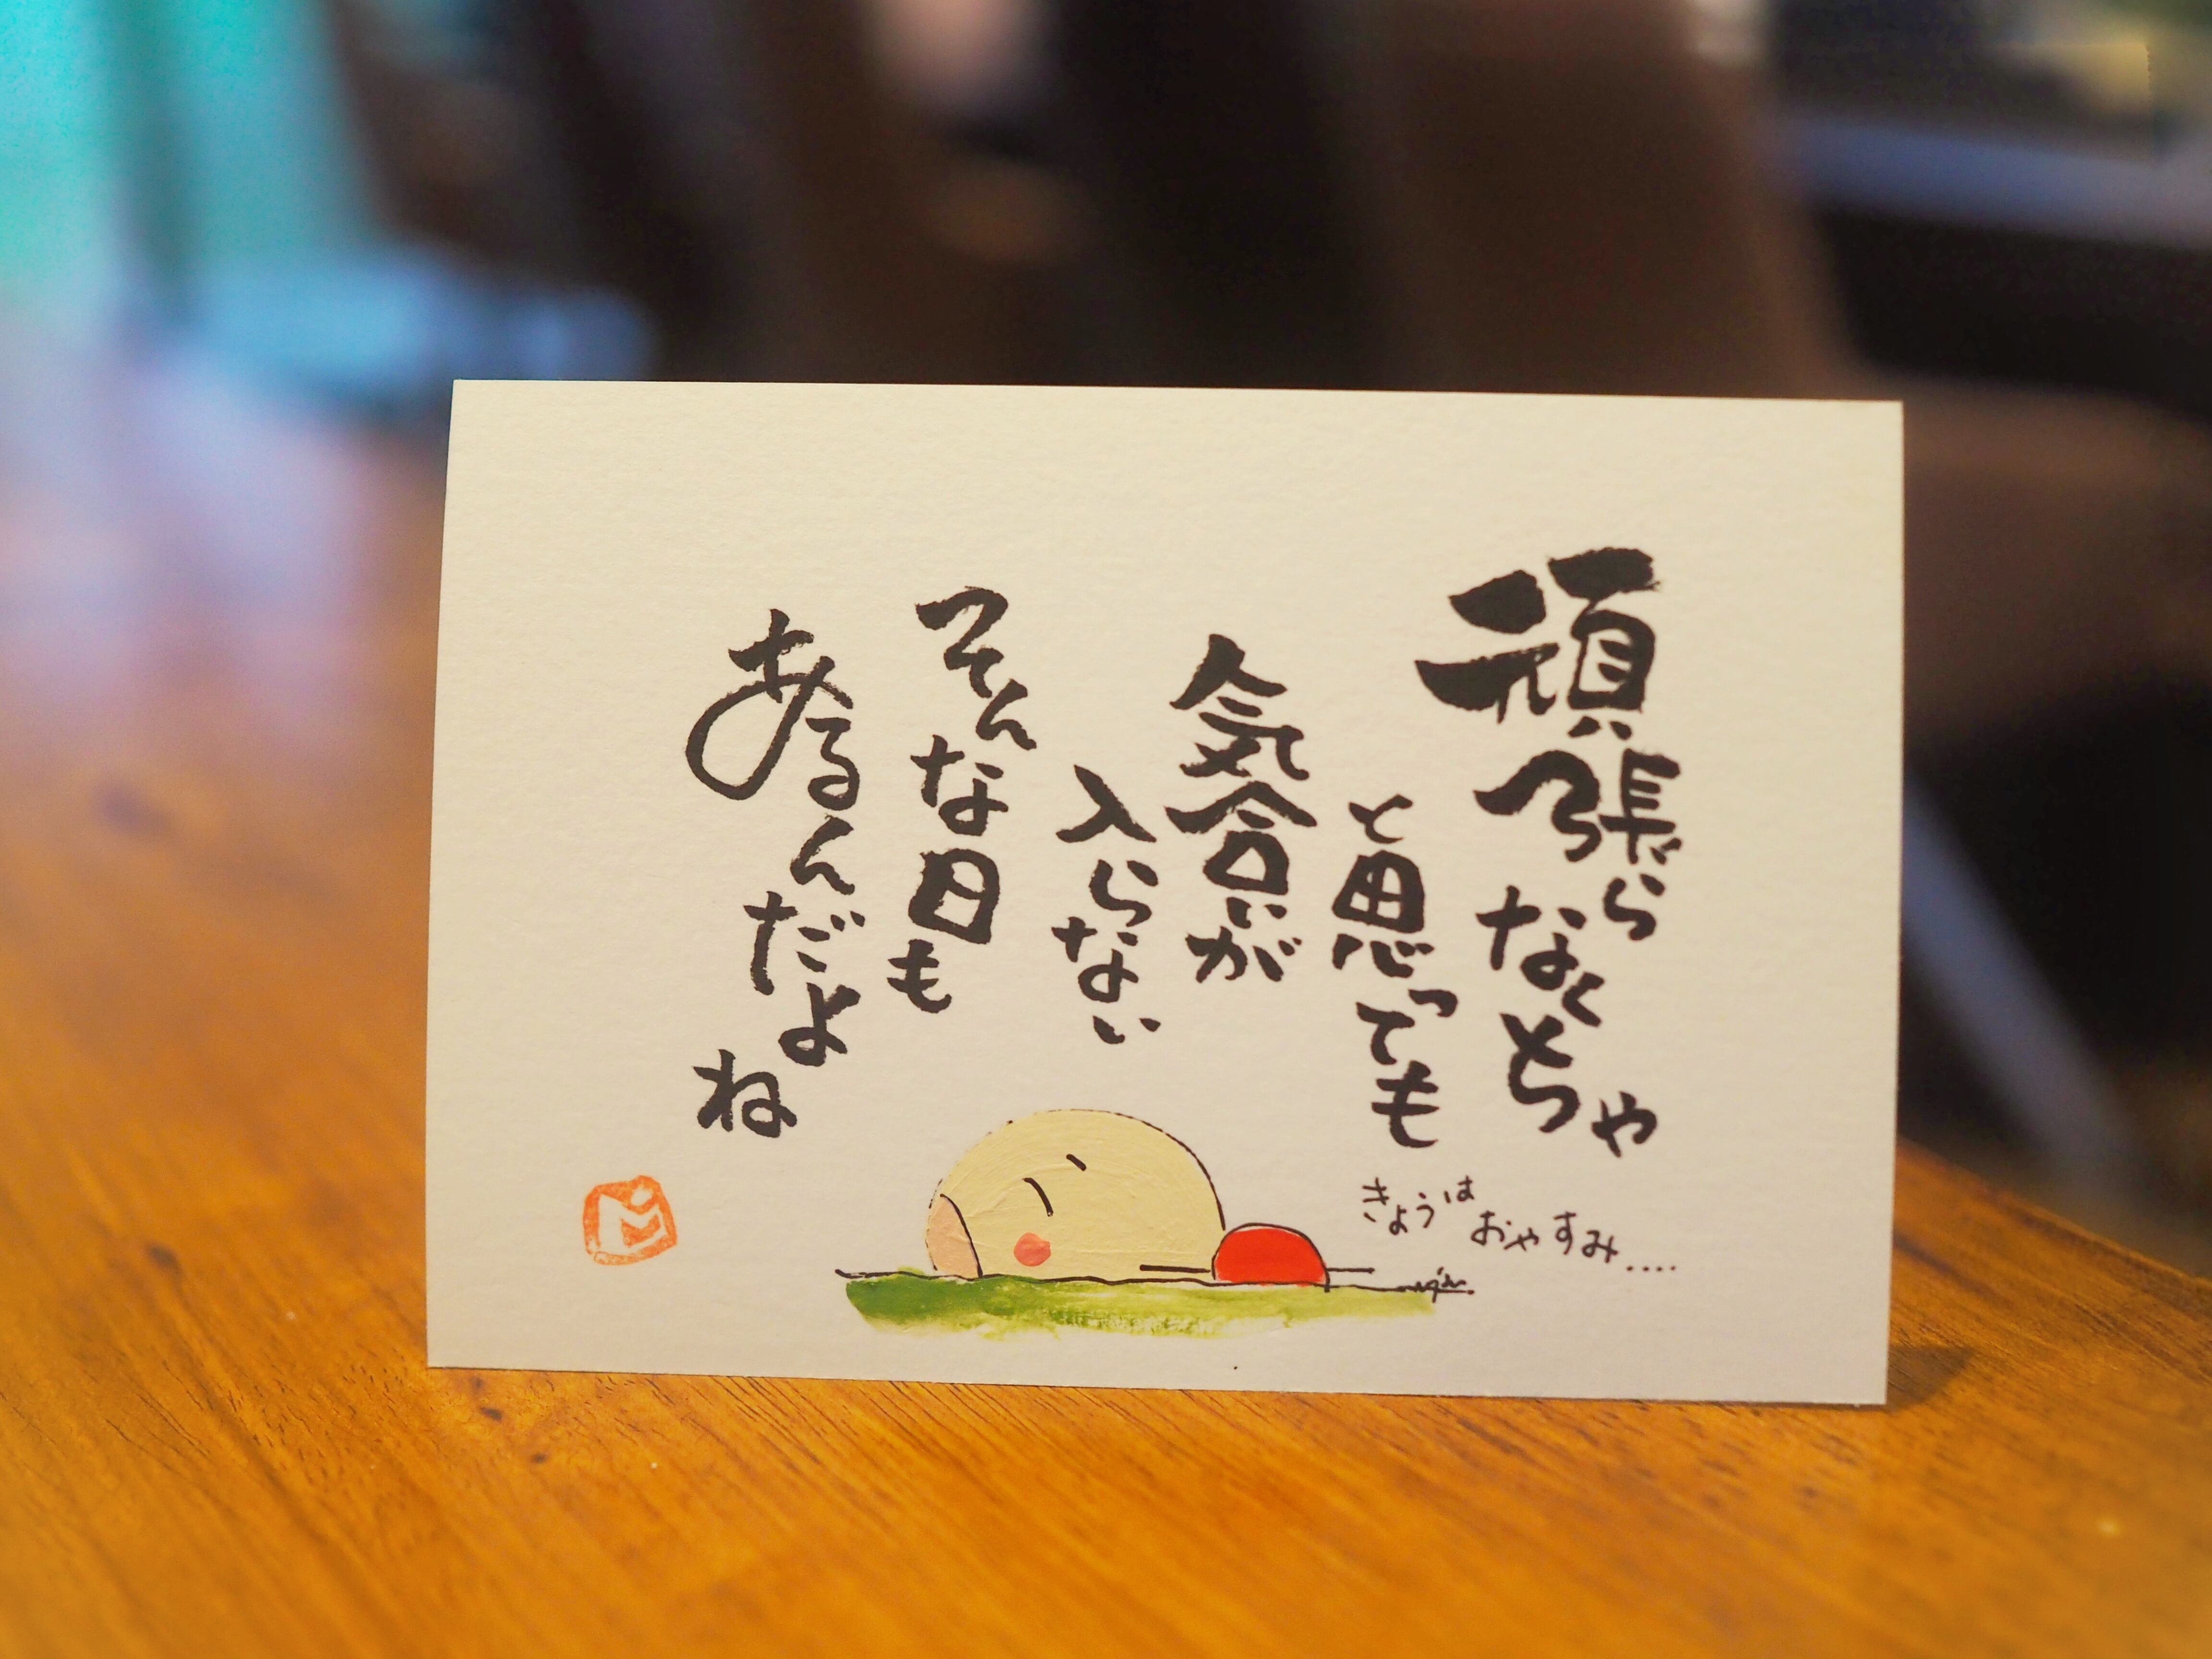 頑張らなくちゃ
と思っても
気合が
入らない
そんな日も
あるんだよ
ね
きょうは
おやすみ.....